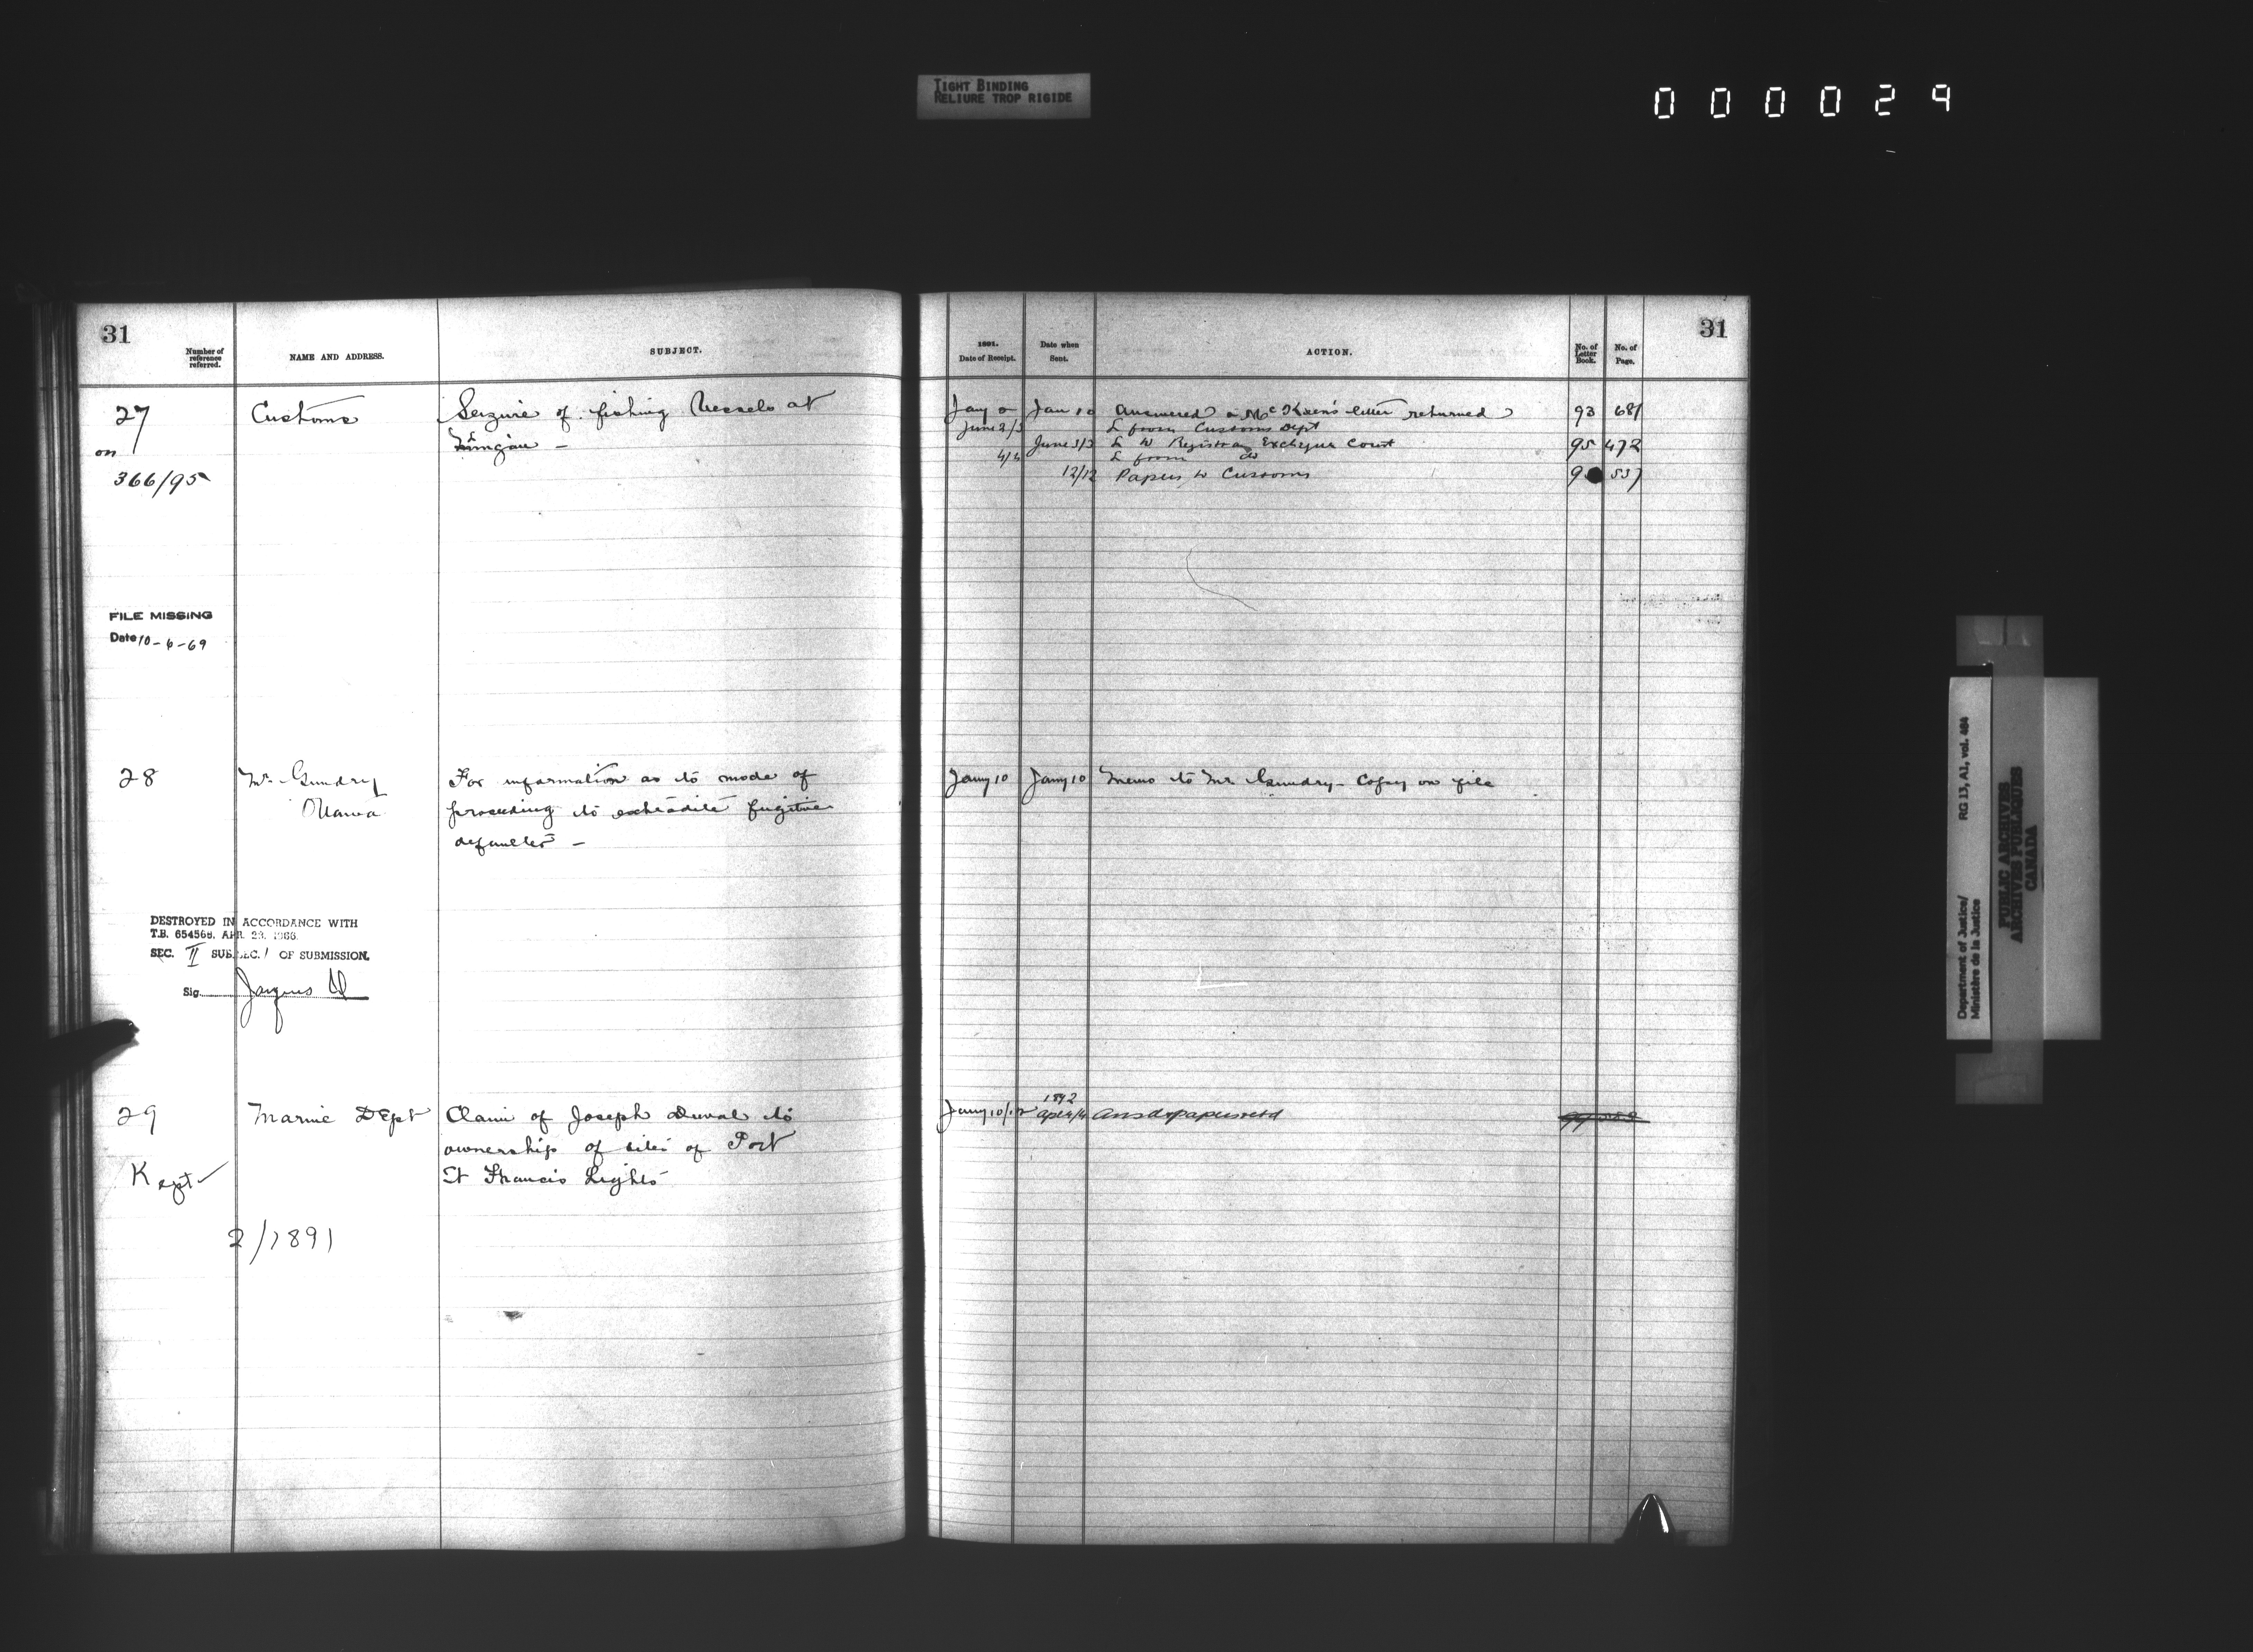 TIGHT BINDING
RELIURE TROP RIGIDE
000029
31
Number of reference referred.
NAME AND ADDRESS.
SUBJECT.
27
on
366/95
Customs
Seizure of fishing Vessels at
Mingan —
FILE MISSING
Date 10-6-69
28
Mr. Gundry
Ottawa
For information as to mode of
proceeding to extradite fugitive
defaulter —
DESTROYED IN ACCORDANCE WITH
T.B. 654568. APR. 23. 1966.
SEC. II SUBSEC. 1 OF SUBMISSION.
Sig. Jacques
29
Kept
2/1891
Marine Dept
Claim of Joseph Duval to
ownership of sites of Port
St Francis Lights
31
1891.
Date of Receipt.
Date when Sent.
ACTION.
No. of Letter Book.
No. of Page.
Jany Jan 10 Answered & returned 93 681
June 2/3 L from Customs Dept
June 3/3 L to Registrar Exchequer Court 95 472
4/4 L from do
12/12 Papers to Customs 537
Jany 10 Jany 10 Memo to Mr Gundry - Copy on file
1892
Jany 10/12 Apl 4/4 Ansd & papers retd
Department of Justice/
Ministère de la Justice
RG 13, A1, vol. 464
PUBLIC ARCHIVES
ARCHIVES PUBLIQUES
CANADA